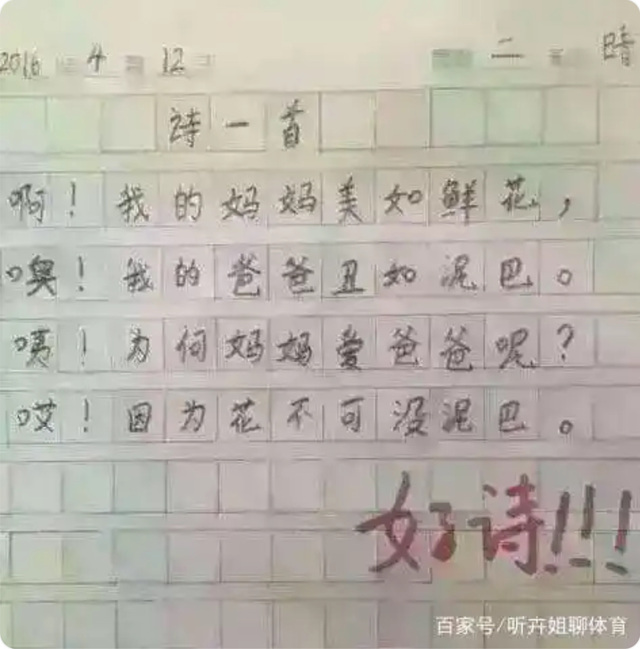 2016 4 12 二 晴
诗一首
啊！我的妈妈美如鲜花，
噢！我的爸爸丑如泥巴。
咦！为何妈妈爱爸爸呢？
哎！因为花不可没泥巴。
好诗!!!
百家号/听卉姐聊体育